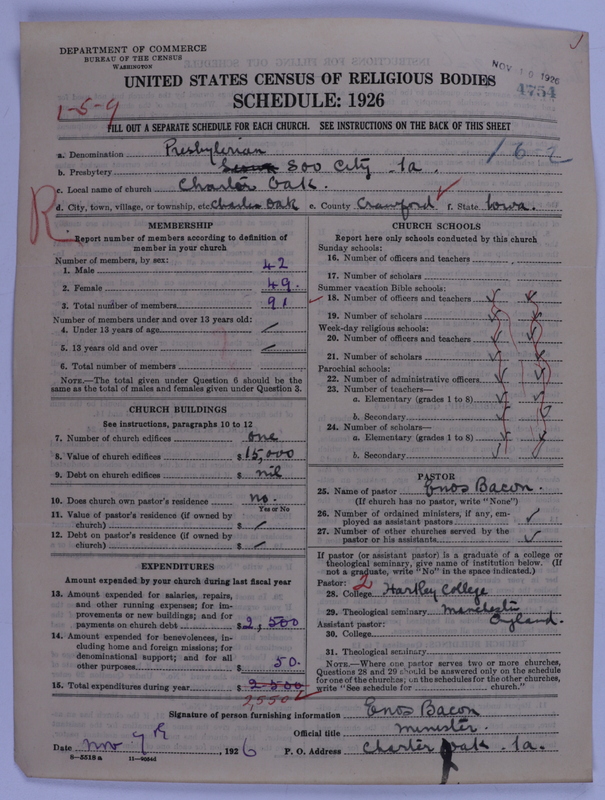 DEPARTMENT OF COMMERCE
BUREAU OF THE CENSUS
WASHINGTON
NOV 10 1926
4754
UNITED STATES CENSUS OF RELIGIOUS BODIES
SCHEDULE: 1926
1-5-9
FILL OUT A SEPARATE SCHEDULE FOR EACH CHURCH. SEE INSTRUCTIONS ON THE BACK OF THIS SHEET
162
a. Denomination Presbyterian
b. Presbytery Soo City Ia.
c. Local name of church Charter Oak.
d. City, town, village, or township, etc. Charter Oak e. County Crawford f. State Iowa.
R
MEMBERSHIP
Report number of members according to definition of member in your church
Number of members, by sex:
1. Male 42
2. Female 49.
3. Total number of members 91
Number of members under and over 13 years old:
4. Under 13 years of age
5. 13 years old and over
6. Total number of members
NOTE.—The total given under Question 6 should be the same as the total of males and females given under Question 3.
CHURCH BUILDINGS
See instructions, paragraphs 10 to 12
7. Number of church edifices one
8. Value of church edifices $15,000
9. Debt on church edifices $ nil
10. Does church own pastor's residence no.
Yes or No
11. Value of pastor's residence (if owned by church) $
12. Debt on pastor's residence (if owned by church) $
EXPENDITURES
Amount expended by your church during last fiscal year
13. Amount expended for salaries, repairs, and other running expenses; for improvements or new buildings; and for payments on church debt $2,500
14. Amount expended for benevolences, including home and foreign missions; for denominational support; and for all other purposes 50.
15. Total expenditures during year $2500
2,550
CHURCH SCHOOLS
Report here only schools conducted by this church
Sunday schools:
16. Number of officers and teachers
17. Number of scholars
Summer vacation Bible schools:
18. Number of officers and teachers
19. Number of scholars
Week-day religious schools:
20. Number of officers and teachers
21. Number of scholars
Parochial schools:
22. Number of administrative officers
23. Number of teachers—
a. Elementary (grades 1 to 8)
b. Secondary
24. Number of scholars—
a. Elementary (grades 1 to 8)
b. Secondary
PASTOR
25. Name of pastor Enos Bacon.
(If church has no pastor, write "None")
26. Number of ordained ministers, if any, employed as assistant pastors
27. Number of other churches served by the pastor or his assistants
If pastor (or assistant pastor) is a graduate of a college or theological seminary, give name of institution below. (If not a graduate, write "No" in the space indicated.)
Pastor: 2
28. College Hartley College
29. Theological seminary Manchester
Assistant pastor:
30. College
31. Theological seminary
NOTE.—Where one pastor serves two or more churches, Questions 28 and 29 should be answered only on the schedule for one of the churches; on the schedules for the other churches, write "See schedule for church."
Signature of person furnishing information Enos Bacon
Official title Minister.
Date Nov 9th, 1926 P. O. Address Charter Oak Ia.
8—5518 a 11—9054d